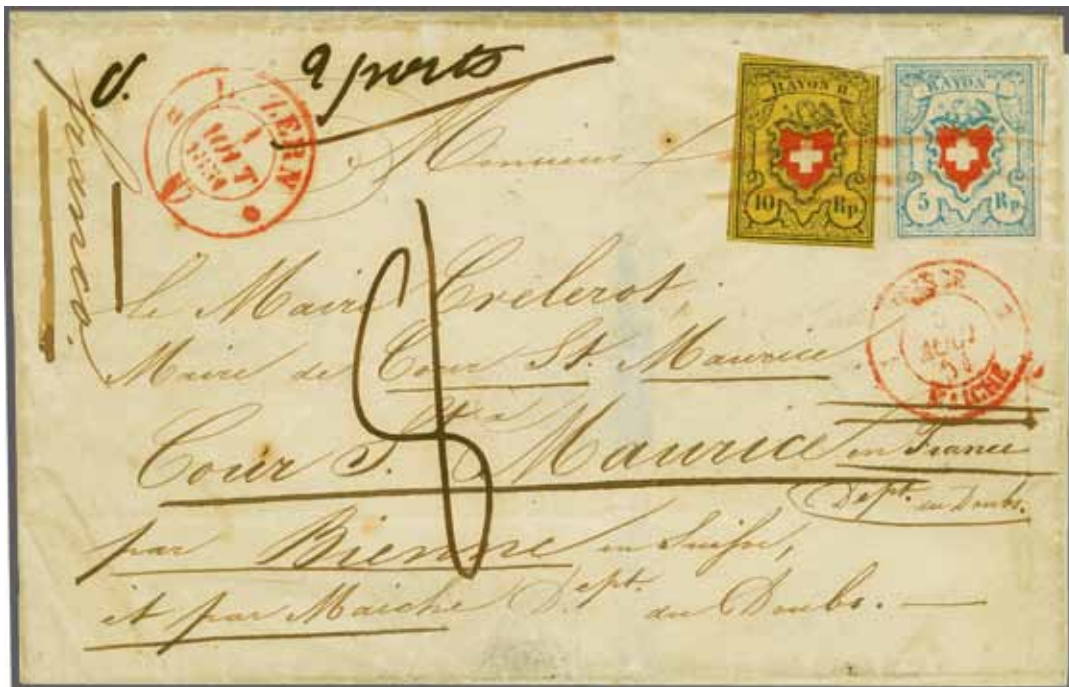 2 ports
LUZERN
1
AOUT
franco.
RAYON II.
10 Rp.
RAYON I.
5 Rp.
Monsieur
le Maire Crelerot.
Maire de Cour St. Maurice.
SUISSE
AOUT
51
MAICHE
Cour St. Maurice en France
Dept. du Doubs.
par Bienne en Suisse,
et par Maiche Dept. du Doubs. —